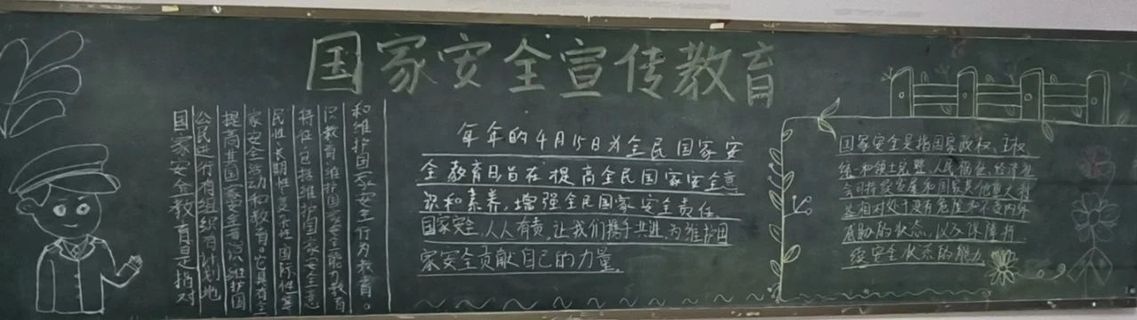 国家安全宣传教育
国家安全教育是指对
公民进行有组织有计划地
提高其国家安全意识维护国
家安全活动和教育。它具有全
民性、长期性、复杂性、国际性等
特征,包括维护国家安全意
识教育、维护国家安全能力教育
和维护国家安全行为教育。
年年的4月15日为全民国家安
全教育日旨在提高全民国家安全意
识和素养,增强全民国家安全责任.
国家安全,人人有责,让我们携手共进,为维护国
家安全贡献自己的力量。
国家安全是指国家政权、主权、
统一和领土完整、人民福祉、经济社
会可持续发展和国家其他重大利
益相对处于没有危险和不受内外
威胁的状态,以及保障持
续安全状态的能力。